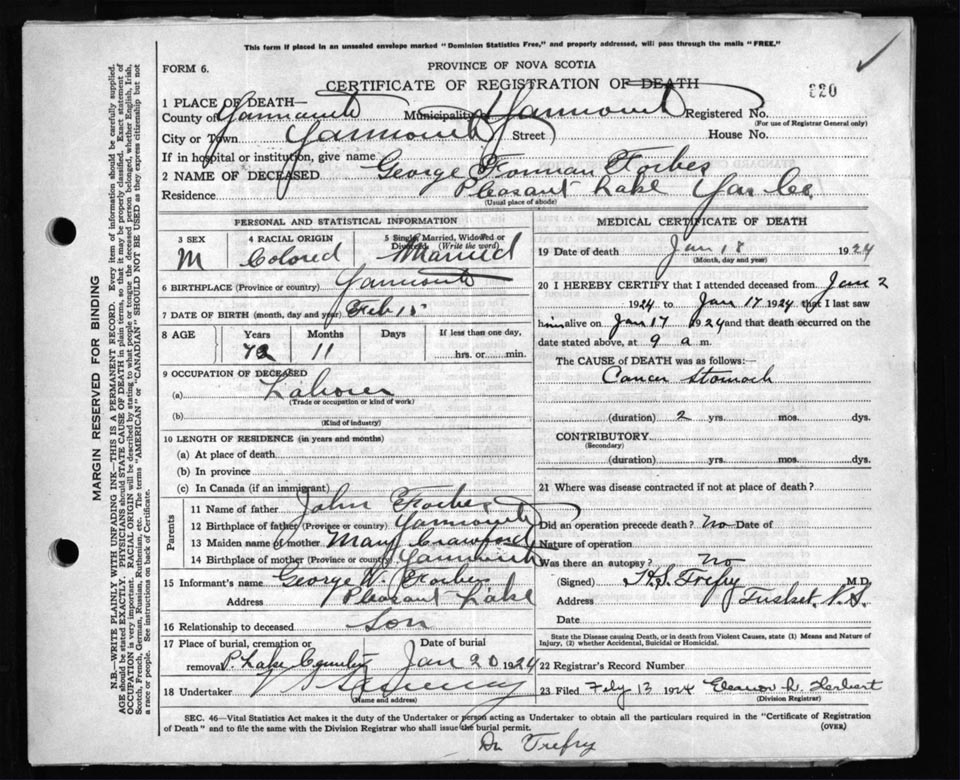 This form if placed in an unsealed envelope marked "Dominion Statistics Free," and properly addressed, will pass through the mails "FREE."
FORM 6.
PROVINCE OF NOVA SCOTIA
CERTIFICATE OF REGISTRATION OF DEATH
220
1 PLACE OF DEATH—
County of Yarmouth Municipality Yarmouth Registered No.
(For use of Registrar General only)
City or Town Yarmouth Street House No.
If in hospital or institution, give name
2 NAME OF DECEASED George Forman Forbes
Residence Pleasant Lake Yar Co.
(Usual place of abode)
PERSONAL AND STATISTICAL INFORMATION
3 SEX
M
4 RACIAL ORIGIN
Colored
5 Single, Married, Widowed or
Divorced (Write the word)
Married
6 BIRTHPLACE (Province or country) Yarmouth
7 DATE OF BIRTH (month, day and year) Feb 15
8 AGE Years Months If less than one day,
72 11 hrs. or min.
9 OCCUPATION OF DECEASED
(a) Laborer
(Trade or occupation or kind of work)
(b)
(Kind of industry)
10 LENGTH OF RESIDENCE (in years and months)
(a) At place of death
(b) In province
(c) In Canada (if an immigrant)
Parents
11 Name of father John Forbes
12 Birthplace of father (Province or country) Yarmouth
13 Maiden name of mother Mary Crawford
14 Birthplace of mother (Province or country) Yarmouth
15 Informant's name George W. Forbes
Address Pleasant Lake
16 Relationship to deceased Son
17 Place of burial, cremation or Date of burial
removal P Lake Jan 20 1924
18 Undertaker
(Name and address)
MEDICAL CERTIFICATE OF DEATH
19 Date of death Jan 18 1924
(Month, day and year)
20 I HEREBY CERTIFY that I attended deceased from Jan 2
1924 to Jan 17 1924 that I last saw
him alive on Jan 17 1924 and that death occurred on
date stated above, at 9 a m.
The CAUSE of DEATH was as follows:—
Cancer Stomach
(duration) 2 yrs. mos. dys.
CONTRIBUTORY
(Secondary)
(duration) yrs. mos. dys.
21 Where was disease contracted if not at place of death?
Did an operation precede death? No Date of
Nature of operation
Was there an autopsy? No
(Signed) Trefry M.D.
Address Tusket, N.S.
Date
State the Disease causing Death, or in death from Violent Causes, state (1) Means and Nature of
Injury, (2) whether Accidental, Suicidal or Homicidal.
22 Registrar's Record Number
23 Filed 13 1924 Herbert
(Division Registrar)
SEC. 46—Vital Statistics Act makes it the duty of the Undertaker or person acting as Undertaker to obtain all the particulars required in the "Certificate of Registration
of Death" and to file the same with the Division Registrar who shall issue the burial permit.
(OVER)
Dr Trefry
MARGIN RESERVED FOR BINDING
N.B.—WRITE PLAINLY WITH UNFADING INK—THIS IS A PERMANENT RECORD. Every item of information should be carefully supplied.
AGE should be stated EXACTLY. PHYSICIANS should STATE CAUSE OF DEATH in plain terms, so that it may be properly classified. Exact statement of
OCCUPATION is very important. RACIAL ORIGIN will be described by stating to what people or tongue the deceased person belonged, whether English, Irish,
Scotch, French, German, Russian, Ruthenian, etc. The terms "AMERICAN" or "CANADIAN" SHOULD NOT BE USED as they express citizenship but not
a race or people. See instructions on back of Certificate.